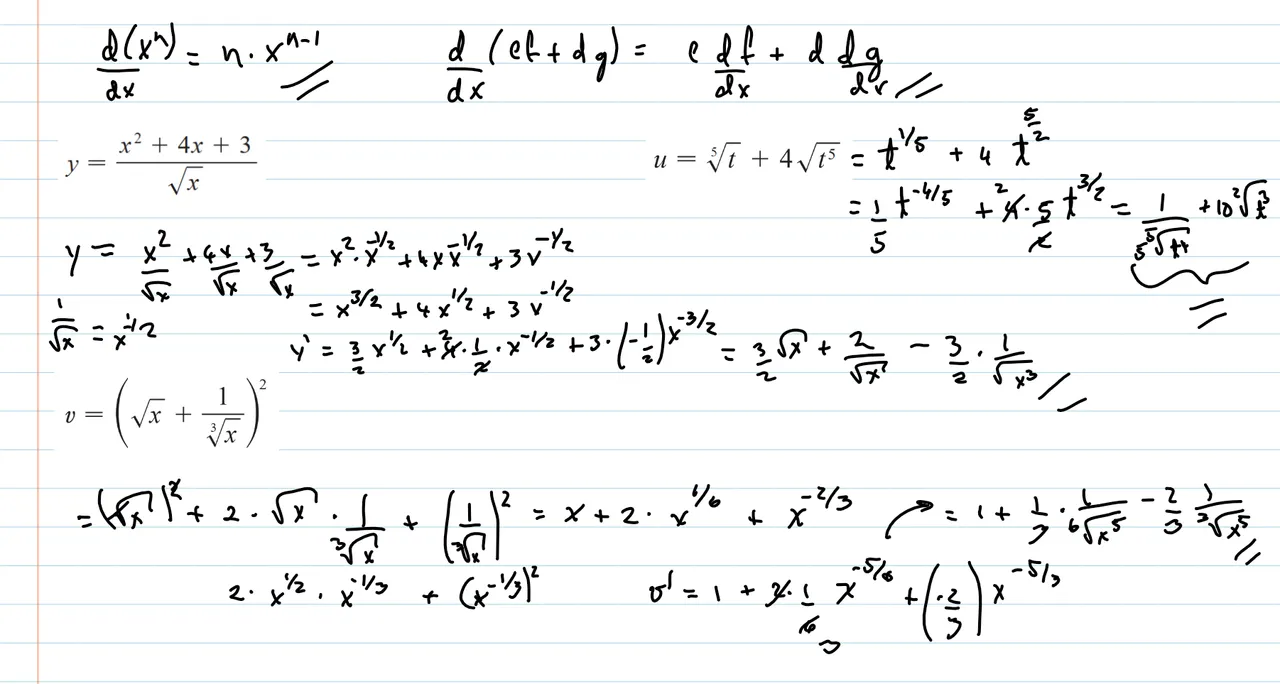 d(xⁿ)/dx = n · xⁿ⁻¹
d/dx (cf + dg) = c df/dx + d dg/dx
y = (x² + 4x + 3)/√x
u = ⁵√t + 4√t⁵ = t^(1/5) + 4 t^(5/2)
= 1/5 t^(-4/5) + 4 · 5/2 t^(3/2) = 1/(5 ⁵√t⁴) + 10 ²√t³
y = x²/√x + 4x/√x + 3/√x = x² · x^(-1/2) + 4x x^(-1/2) + 3x^(-1/2)
= x^(3/2) + 4x^(1/2) + 3x^(-1/2)
1/√x = x^(-1/2)
y' = 3/2 x^(1/2) + 4 · 1/2 · x^(-1/2) + 3 · (-1/2) x^(-3/2) = 3/2 √x + 2/√x - 3/2 · 1/√x³
v = (√x + 1/³√x)²
= (√x)² + 2 · √x · 1/³√x + (1/³√x)² = x + 2 · x^(1/6) + x^(-2/3)
= 1 + 1/3 · 1/⁶√x⁵ - 2/3 1/³√x⁵
2 · x^(1/2) · x^(-1/3) + (x^(-1/3))²
v' = 1 + 2 · 1/6 x^(-5/6) + (-2/3) x^(-5/3)